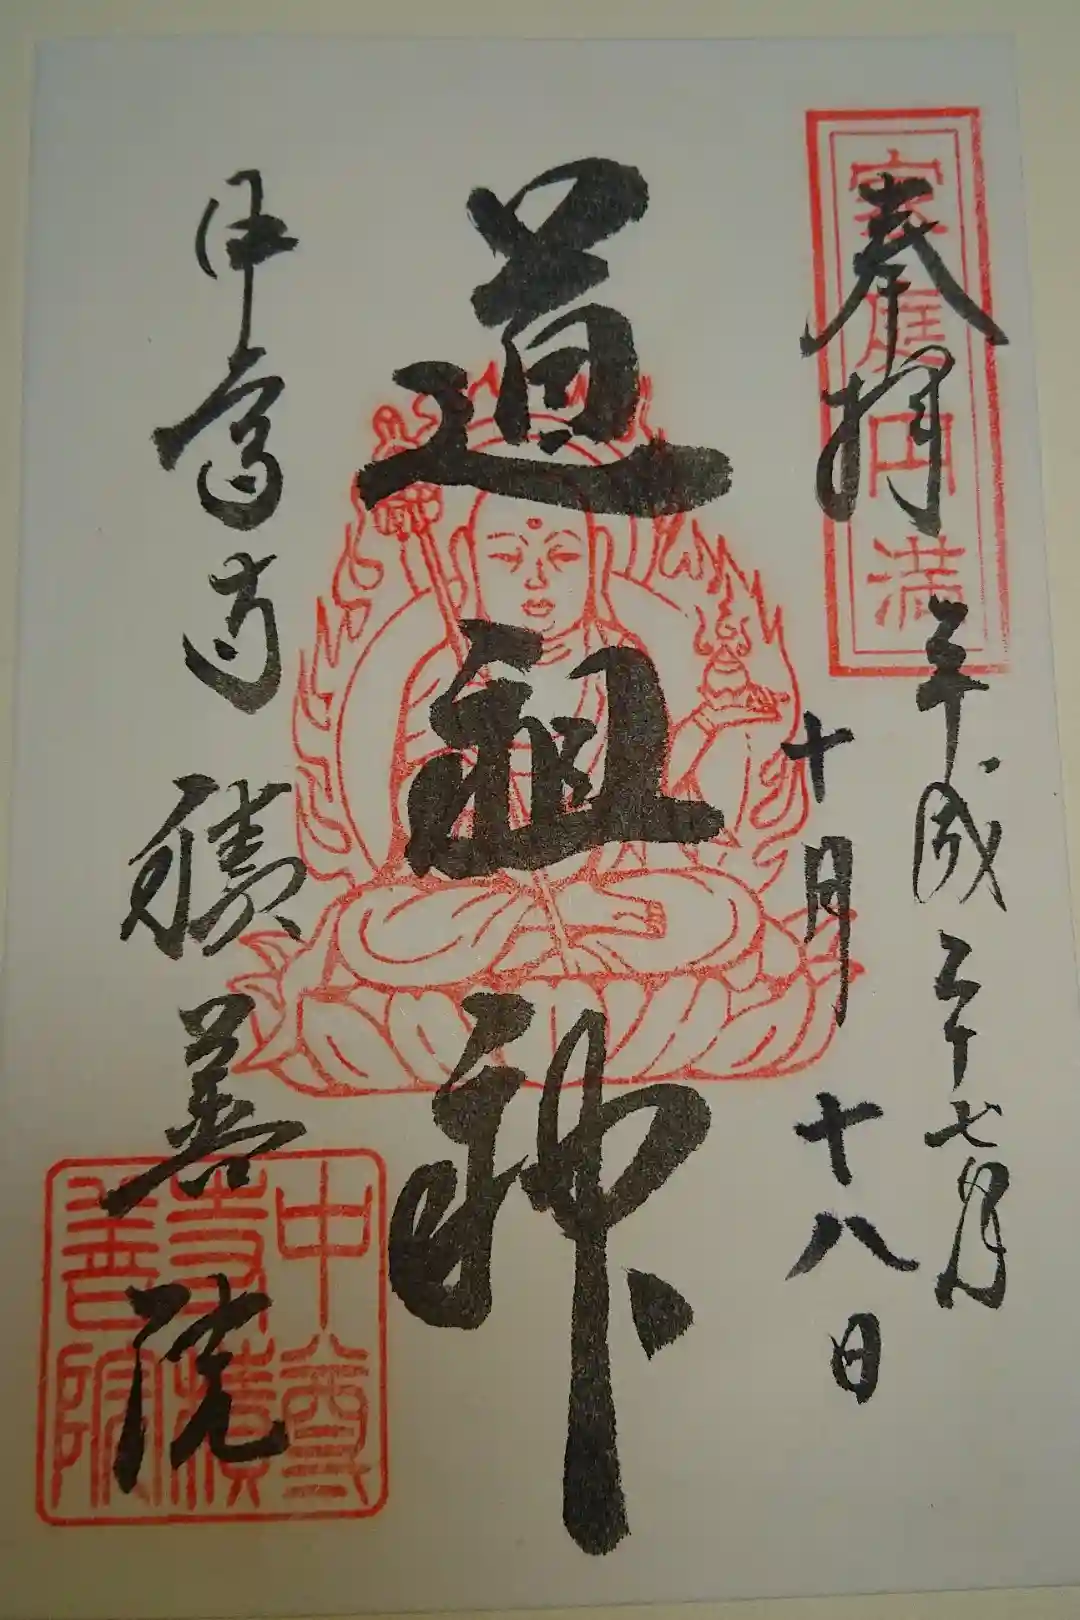 家庭円満
奉拝
平成二十七年
十月十八日
道祖神
中尊寺積善院
中尊
寺積
善院